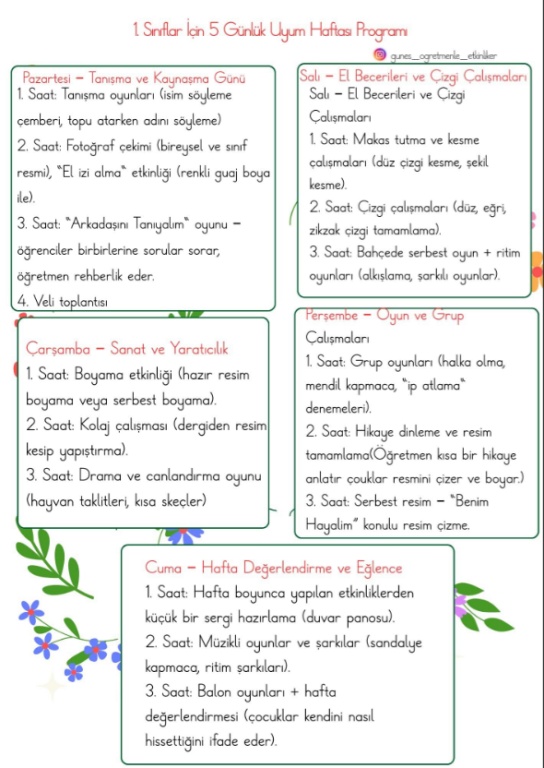 1. Sınıflar İçin 5 Günlük Uyum Haftası Programı
gunes_ogretmenle_etkinlikler
Pazartesi – Tanışma ve Kaynaşma Günü
1. Saat: Tanışma oyunları (isim söyleme
çemberi, topu atarken adını söyleme)
2. Saat: Fotoğraf çekimi (bireysel ve sınıf
resmi), "El izi alma" etkinliği (renkli guaj boya
ile).
3. Saat: "Arkadaşını Tanıyalım" oyunu –
öğrenciler birbirlerine sorular sorar,
öğretmen rehberlik eder.
4. Veli toplantısı
Salı – El Becerileri ve Çizgi Çalışmaları
Salı – El Becerileri ve Çizgi
Çalışmaları
1. Saat: Makas tutma ve kesme
çalışmaları (düz çizgi kesme, şekil
kesme).
2. Saat: Çizgi çalışmaları (düz, eğri,
zikzak çizgi tamamlama).
3. Saat: Bahçede serbest oyun + ritim
oyunları (alkışlama, şarkılı oyunlar).
Çarşamba – Sanat ve Yaratıcılık
1. Saat: Boyama etkinliği (hazır resim
boyama veya serbest boyama).
2. Saat: Kolaj çalışması (dergiden resim
kesip yapıştırma).
3. Saat: Drama ve canlandırma oyunu
(hayvan taklitleri, kısa skeçler)
Perşembe – Oyun ve Grup
Çalışmaları
1. Saat: Grup oyunları (halka olma,
mendil kapmaca, "ip atlama"
denemeleri).
2. Saat: Hikaye dinleme ve resim
tamamlama(Öğretmen kısa bir hikaye
anlatır çouklar resmini çizer ve boyar.)
3. Saat: Serbest resim – "Benim
Hayalim" konulu resim çizme.
Cuma – Hafta Değerlendirme ve Eğlence
1. Saat: Hafta boyunca yapılan etkinliklerden
küçük bir sergi hazırlama (duvar panosu).
2. Saat: Müzikli oyunlar ve şarkılar (sandalye
kapmaca, ritim şarkıları).
3. Saat: Balon oyunları + hafta
değerlendirmesi (çocuklar kendini nasıl
hissettiğini ifade eder).